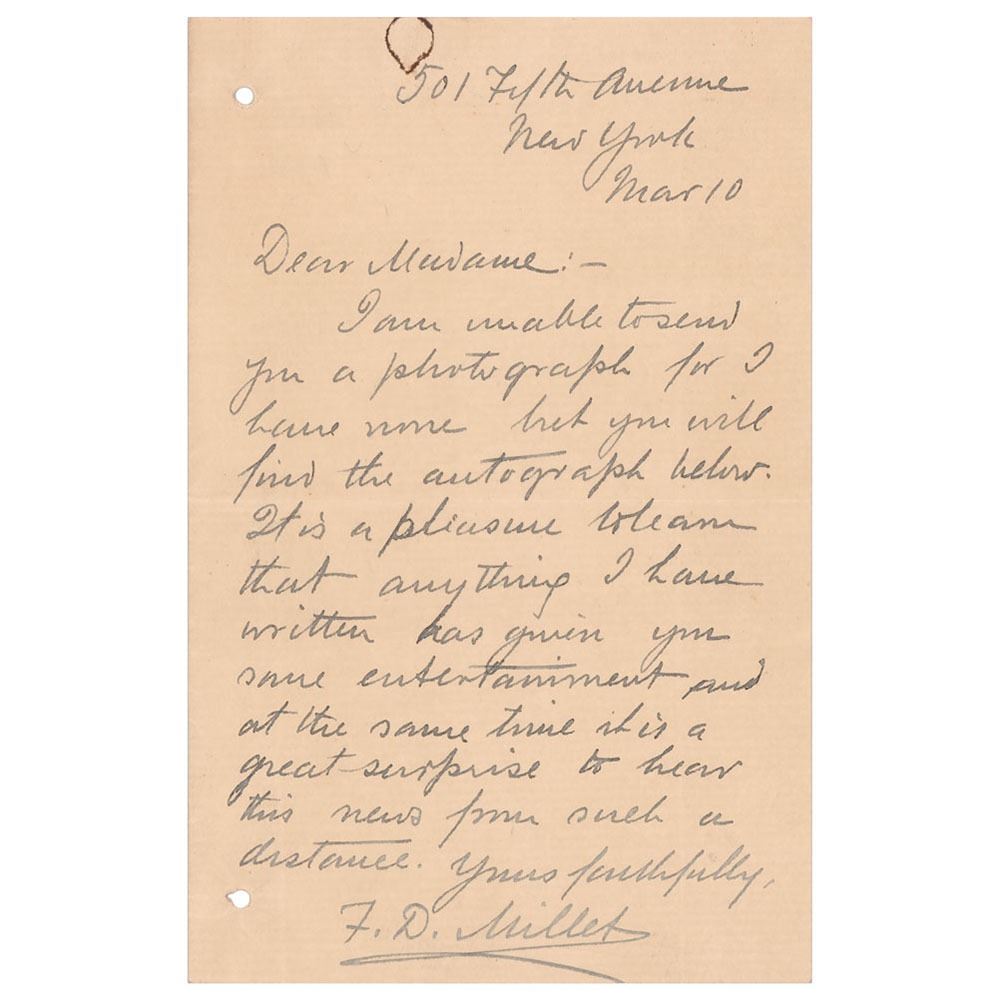 501 Fifth Avenue
New York
Mar 10
Dear Madame:—
I am unable to send
you a photograph for I
have none but you will
find the autograph below.
It is a pleasure to learn
that anything I have
written has given you
some entertainment and
at the same time it is a
great surprise to hear
this news from such a
distance. Yours faithfully,
F. D. Millet